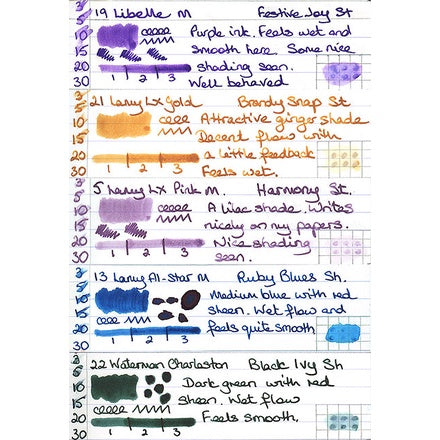 3 19 Libelle M Festive Joy St
5
10 Purple ink. Feels wet and
15 smooth here. Some nice
20 shading seen.
30 1 2 3 Well behaved
3 21 Lamy Lx Gold Brandy Snap St
5
10 Attractive ginger shade
15 Decent flow with
20 a little feedback
30 1 2 3 Feels wet.
3 5 Lamy Lx Pink M. Harmony St.
5
10 A lilac shade. Writes
15 nicely on my papers.
20 Nice shading
30 1 2 3 seen.
3 13 Lamy Al-Star M Ruby Blues Sh.
5
10 Medium blue with red
15 sheen. Wet flow and
20 feels quite smooth
30 1 2 3
3 22 Waterman Charleston Black Ivy Sh
5
10 Dark green with red
15 sheen. Wet flow
20 Feels smooth.
30 1 2 3